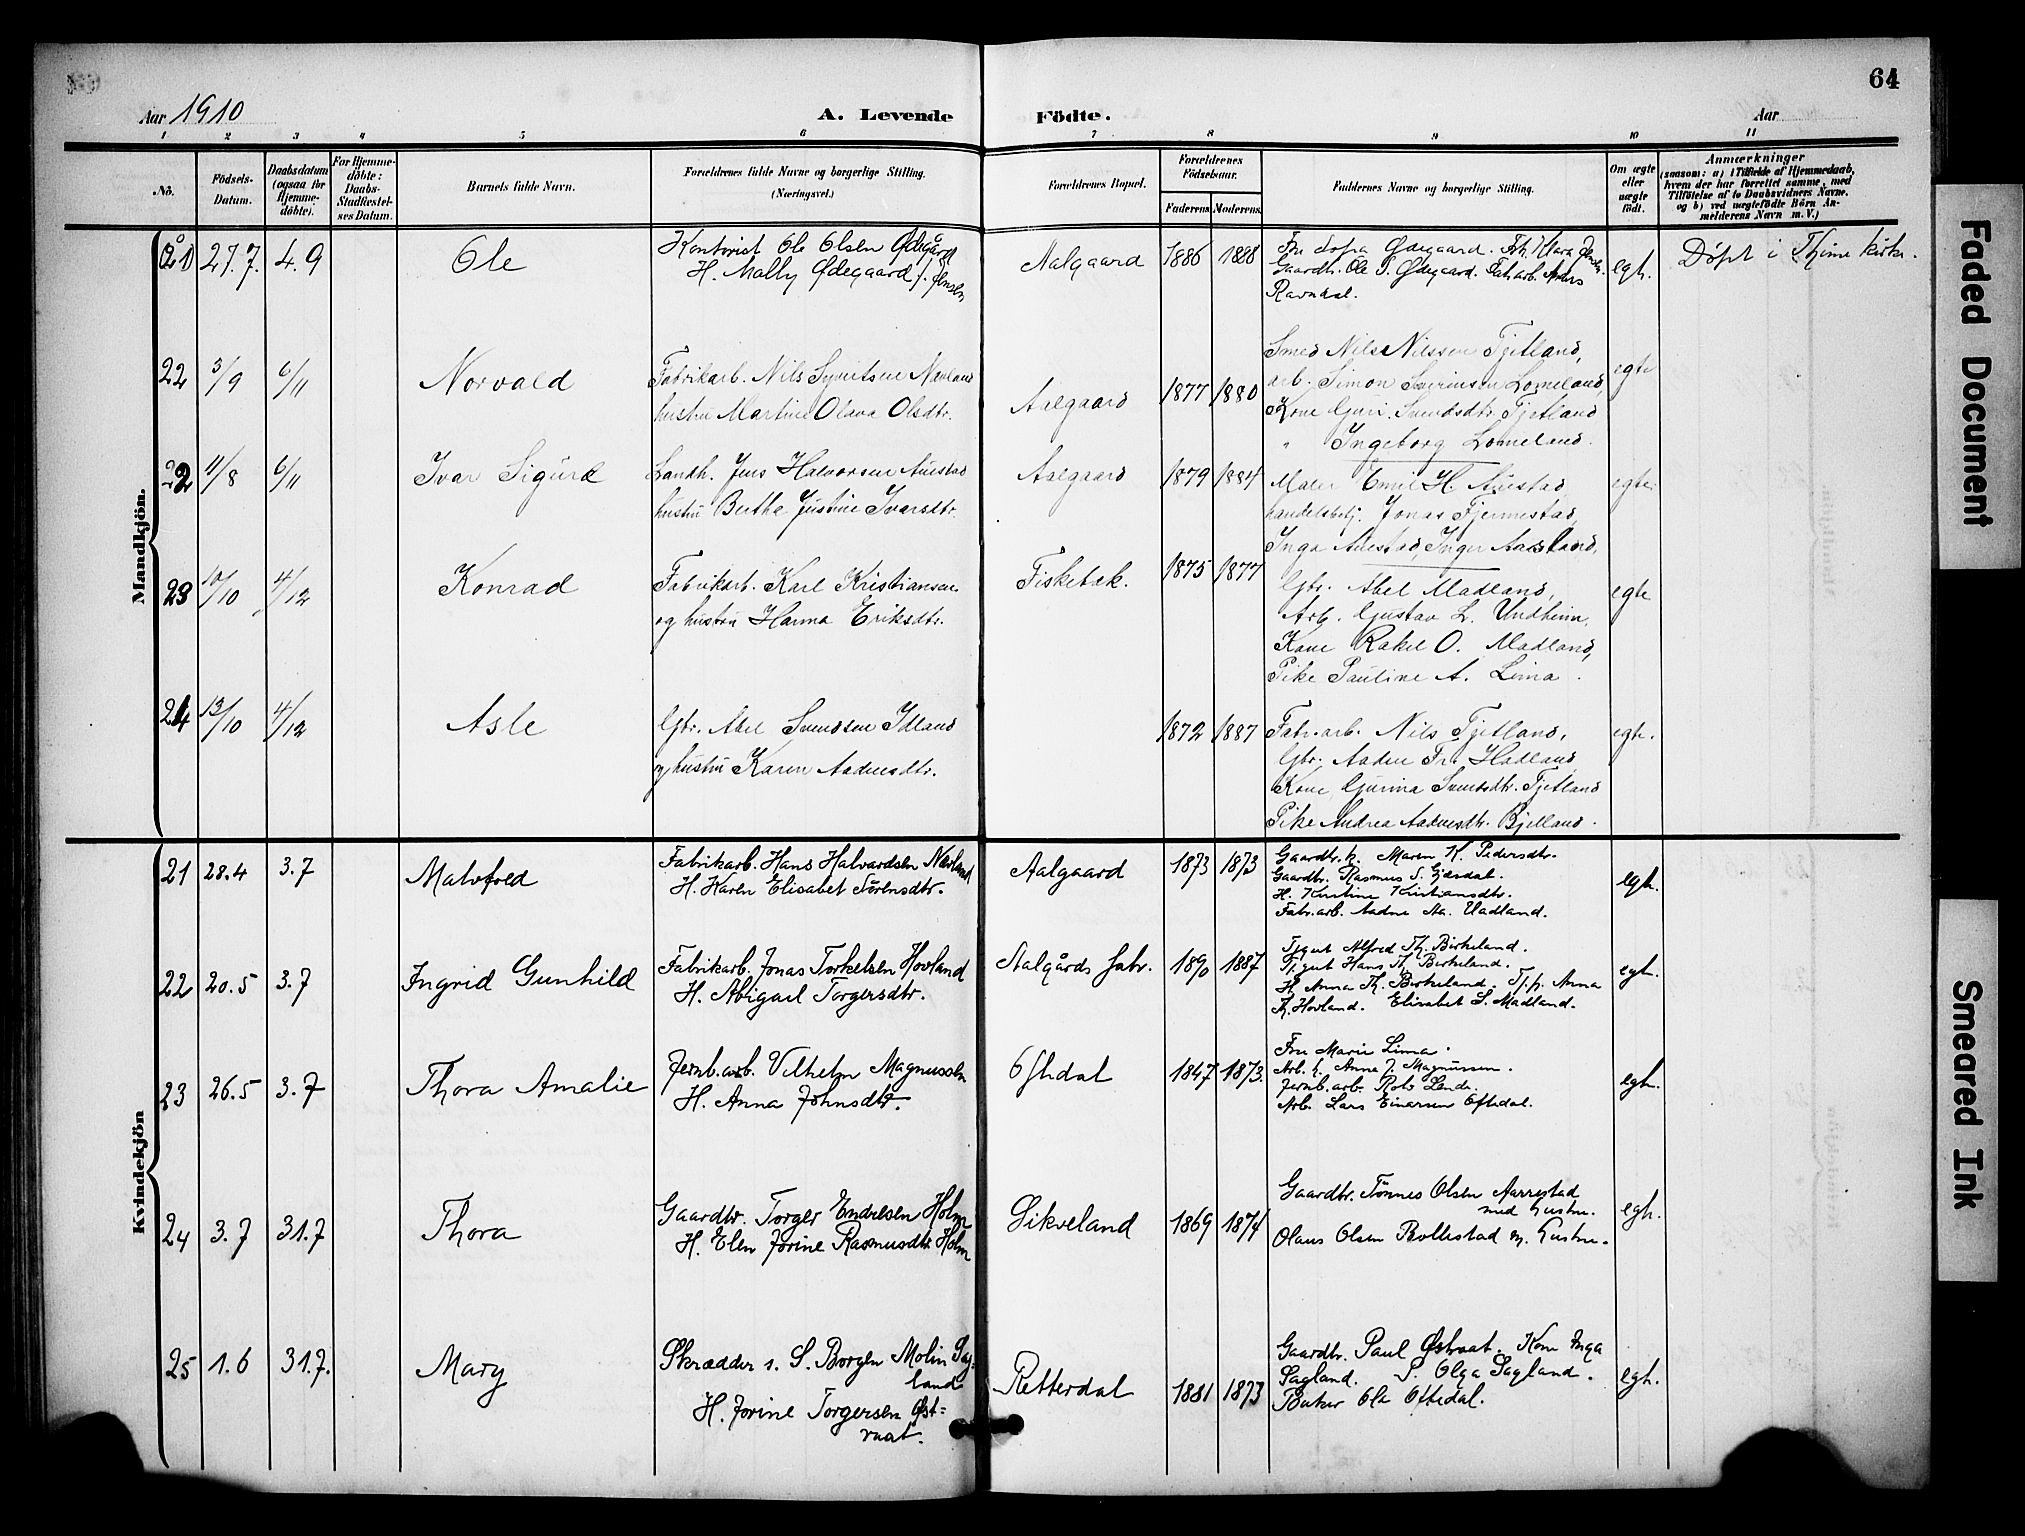 64
Aar 1910
A. Levende Födte.
Aar
1 2 3 4 5 6 7 8 9 10 11
Nö.
Födsels-Datum.
Daabsdatum (ogsaa for Hjemme-döbte).
For Hjemme-döbte: Daabs-Stadfæstel-ses Datum.
Barnets fulde Navn.
Forældrenes fulde Navne og borgerlige Stilling. (Næringsvei.)
Forældrenes Bopæl.
Forældrenes Födselsaar.
Faderens Moderens
Faddernes Navne og borgerlige Stilling.
Om ægte eller uægte födt.
Anmærkninger
(saasom: a) i Tilfælde af Hjemmedaab, hvem der har forrettet samme, med Tilföielse af to Daabsvidners Navne, og b) ved uægtefödte Börn An-melderens Navn m. V.)
Mandkjön.
21 27.7. 4.9 Ole
Kontorist Ole Olsen Ødegård
H. Mally Ødegaard f. Jensen
Aalgaard 1886 1888
Fru Sofia Ødegaard. Frk. Klara Jensen
Gaardbr. Ole S. Ødegaard. Fabr.arb. Anders
Ravndal.
egte.
Döpt i Thime kirke.
22 3/9 6/11 Norvald
Fabrikarb. Nils Syvertsen Nevland
hustru Martine Olava Olsdtr.
Aalgaard 1877 1880
Smed Nils Nilssen Tjetland,
arb. Simon Sverinsen Lomeland,
Kone Guri Svendsdtr. Tjetland
" Ingeborg Lomeland.
egte
22 11/8 6/11 Ivar Sigurd
Landh. Jens Halvorsen Auestad
hustru Bertha Justine Ivarsdtr.
Aalgaard 1879 1884
Maler Emil H. Auestad
handelsbetj. Jonas Fjermestad,
Inga Auestad, Inger Aarsland,
egte
23 10/10 4/12 Konrad
Fabrikarb. Karl Kristiansen
og hustru Hanna Eriksdtr.
Fiskebæk. 1875 1877
Gbr. Abel Madland,
Arb. Gustav L. Undheim,
Kone Rakel O. Madland,
Pike Pauline A. Lima.
egte
24 13/10 4/12 Asle
Gbr. Abel Svendsen Idland
og hustru Karen Aadnesdtr.
1872 1887
Fabr.arb. Nils Tjetland,
Gbr. Aadne Fr. Hadland
Kone Gurina Svendsdtr. Tjetland
Pike Andrea Aadnesdtr. Bjelland.
egte.
Kvindekjön
21 28.4 3.7 Malvfred
Fabrikarb. Hans Halvardsen Nævland
H. Karen Elisabet Sörensdtr.
Aalgaard 1873 1873
Gaardbr. h. Maren K. Pedersdtr.
Gaardbr. Rasmus S. Gjesdal.
H. Kristine Kristiansdtr.
Fabr.arb. Aadne Aa. Vadland.
egte.
22 20.5 3.7 Ingrid Gunhild
Fabrikarb. Jonas Torkelsen Hovland
H. Abigael Torgersdtr.
Aalgårds fabr. 1890 1887
Tjgut Alfred Th. Birkeland.
Tj.gut Hans Th. Birkeland.
H. Anna Th. Birkeland. Tj.p. Anna
Th. Hovland. Elisabet S. Madland.
egte.
23 26.5 3.7 Thora Amalie
Jernb.arb. Vilhelm Magnussen
H. Anna Johnsdtr.
Oftedal 1847 1873.
Fru Marie Lima.
Arb. h. Anne J. Magnussen.
Jernb.arb. Rob. Lende.
Arb. Lars Einarsen Oftedal.
egte.
24 3.7 31.7 Thora
Gaardbr. Torger Endresen Holm
H. Elen Jorine Rasmusdtr. Holm
Sikveland 1869 1874
Gaardbr. Tönnes Olsen Aarrestad
med hustru.
Olaus Olsen Bollestad m. hustru.
egte.
25 1.6 31.7. Mary
Skrædder s. S. Borgen Molin Sag-
land
H. Jorine Torgersen Øst=
raat.
Retterdal 1881 1873
Gaardbr. Paul Østraat. Kone Inga
Sagland. P. Olga Sagland.
Baker Ola Oftedal.
egte.
Faded Document
Smeared Ink